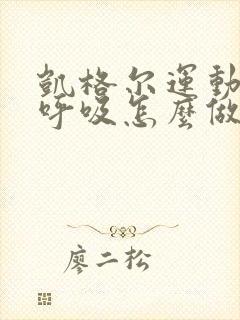 凱格尔運動
呼吸怎麼做
廖二松